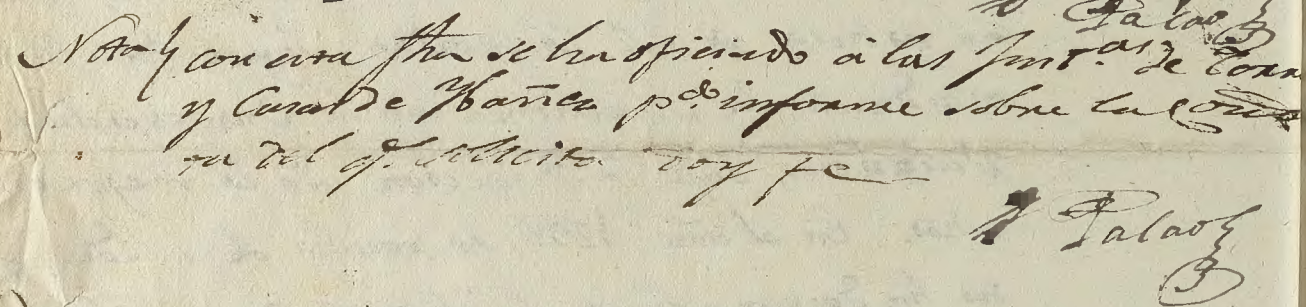 Palao
Nota con esta fha se ha oficiado á las Just.as de
y Casas de Ybañez p.a informe sobre la Con
ta del q.e solicita doy fe
Palao